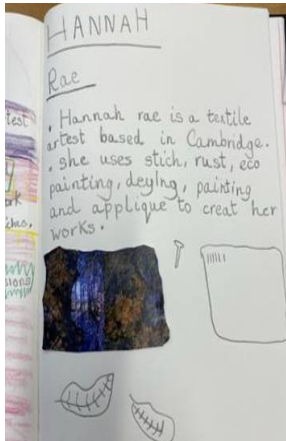 test
HANNAH
Rae
. Hannah rae is a textile
artest based in Cambridge.
. she uses stich, rust, eco
painting, deyIng, painting
and applique to creat her
works.